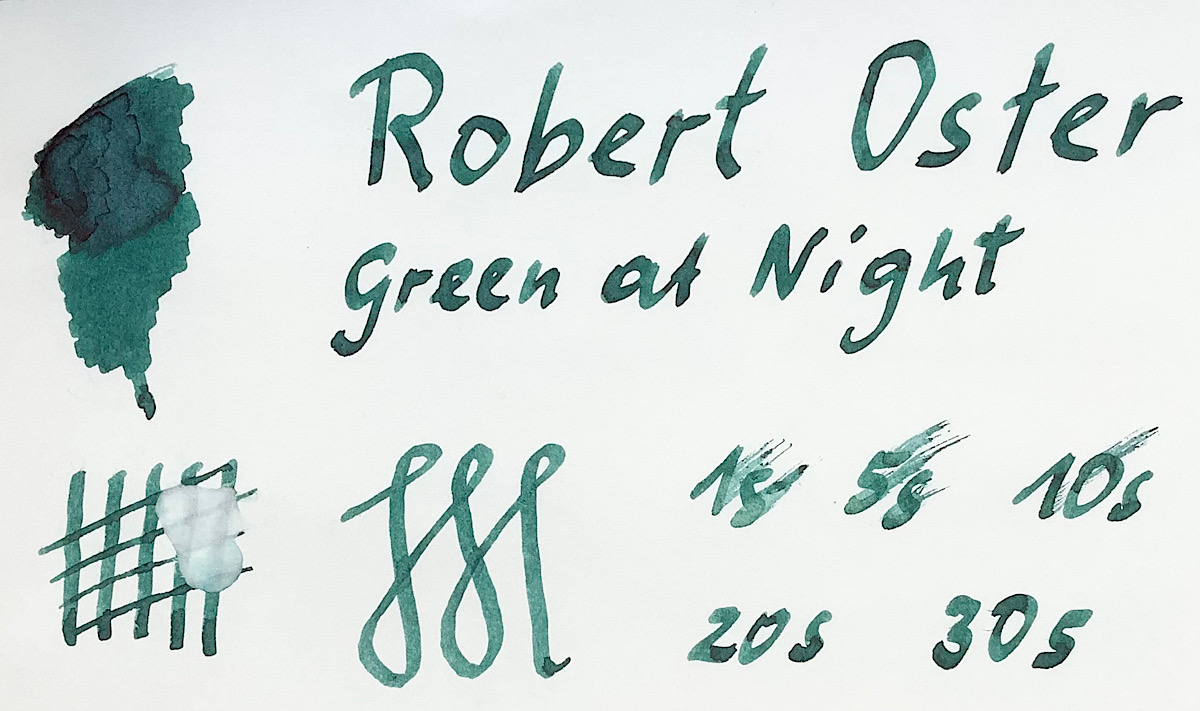 Robert Oster
Green at Night
1s 5s 10s
20s 30s